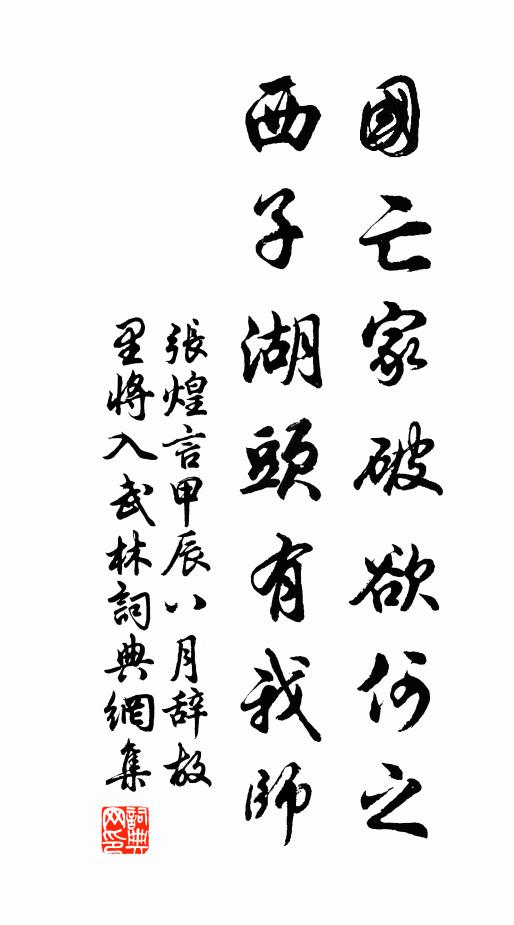 國亡家破欲何之
西子湖頭有我師
張煌言甲辰八月辞故
里將入武林詞典網集
詞典网印